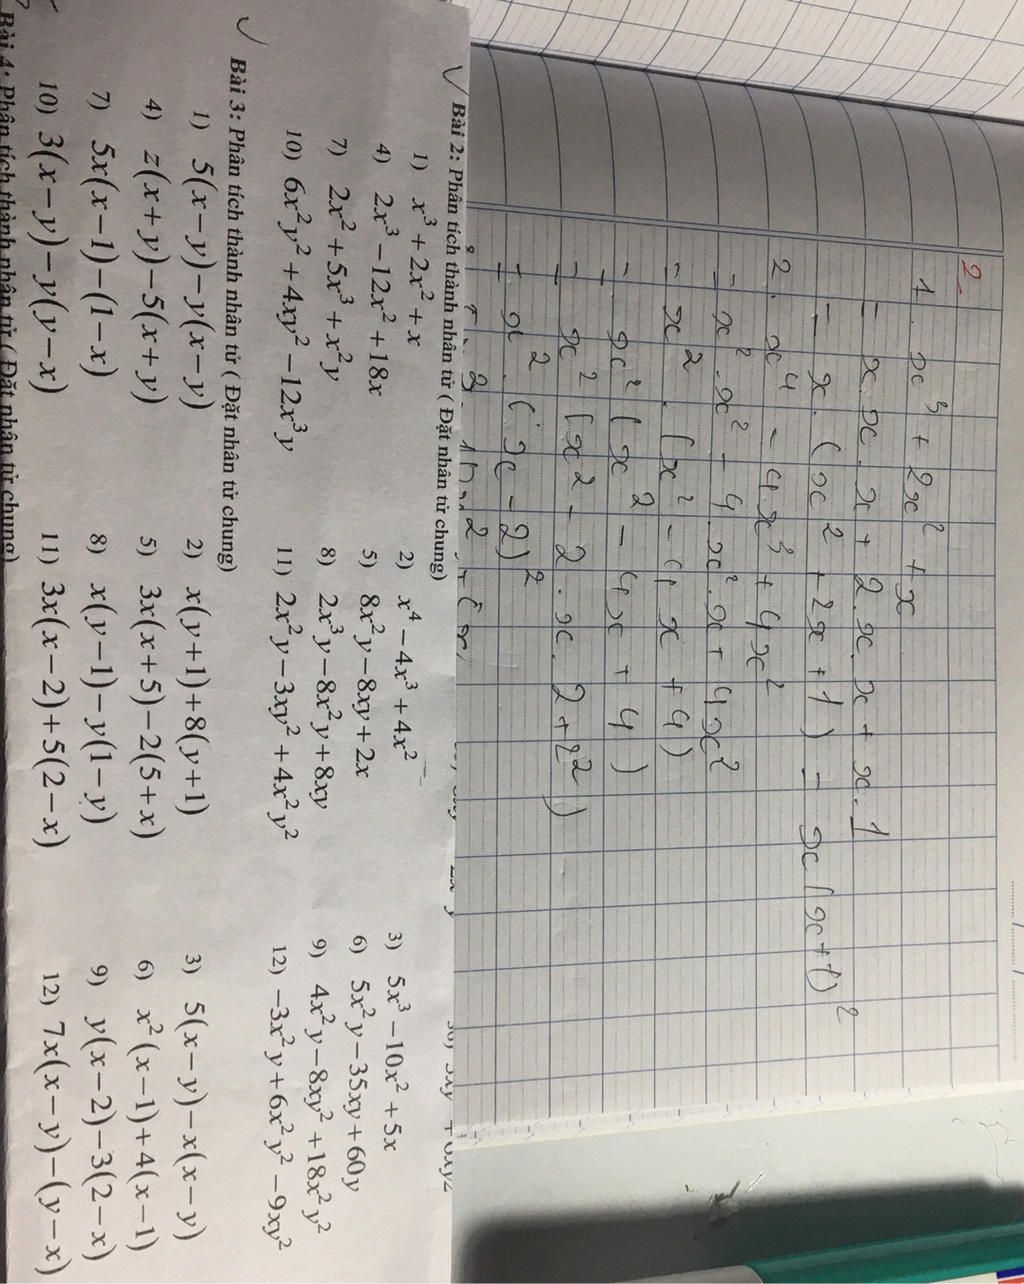 2.
1. x³ + 2x² + x
= x.x.x + 2.x.x + x.1
= x.(x² + 2x + 1) = x(x+1)²
2. x⁴ - 4x³ + 4x²
= x².x² - 4.x².x + 4x²
= x².(x² - 4x + 4)
= x²(x² - 4x + 4)
= x²(x² - 2.x.2 + 2²)
= x².(x - 2)²
Bài 2: Phân tích thành nhân tử ( Đặt nhân tử chung)
1) x³ + 2x² + x 2) x⁴ - 4x³ + 4x² 3) 5x³ - 10x² + 5x
4) 2x³ - 12x² + 18x 5) 8x²y - 8xy + 2x 6) 5x²y - 35xy + 60y
7) 2x² + 5x³ + x²y 8) 2x³y - 8x²y + 8xy 9) 4x²y - 8xy² + 18x²y²
10) 6x²y² + 4xy² - 12x³y 11) 2x²y - 3xy² + 4x²y² 12) -3x²y + 6x²y² - 9xy²
Bài 3: Phân tích thành nhân tử ( Đặt nhân tử chung)
1) 5(x - y) - y(x - y) 2) x(y+1) + 8(y+1) 3) 5(x - y) - x(x - y)
4) z(x + y) - 5(x + y) 5) 3x(x+5) - 2(5+x) 6) x²(x-1) + 4(x-1)
7) 5x(x-1) - (1-x) 8) x(y-1) - y(1-y) 9) y(x-2) - 3(2-x)
10) 3(x - y) - y(y - x) 11) 3x(x-2) + 5(2-x) 12) 7x(x - y) - (y - x)
Bài 4: Phân tích thành nhân tử ( Đặt nhân tử chung)